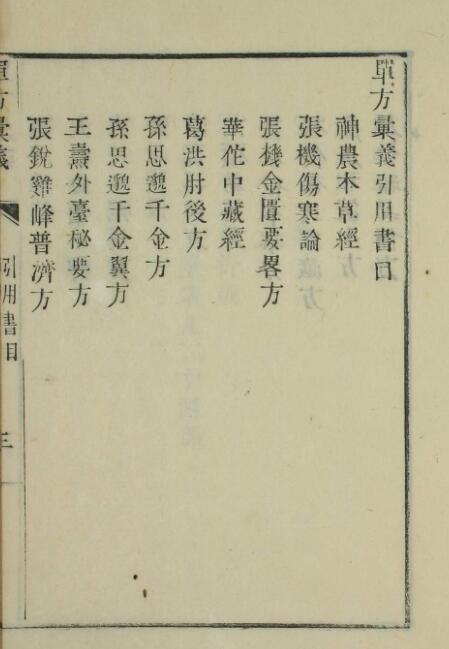 單方彙義引用書目
神農本草經
張機傷寒論
張機金匱要畧方
華佗中藏經
葛洪肘後方
孫思邈千金方
孫思邈千金翼方
王燾外臺秘要方
張銳雞峰普濟方
單方彙義 引用書目 三